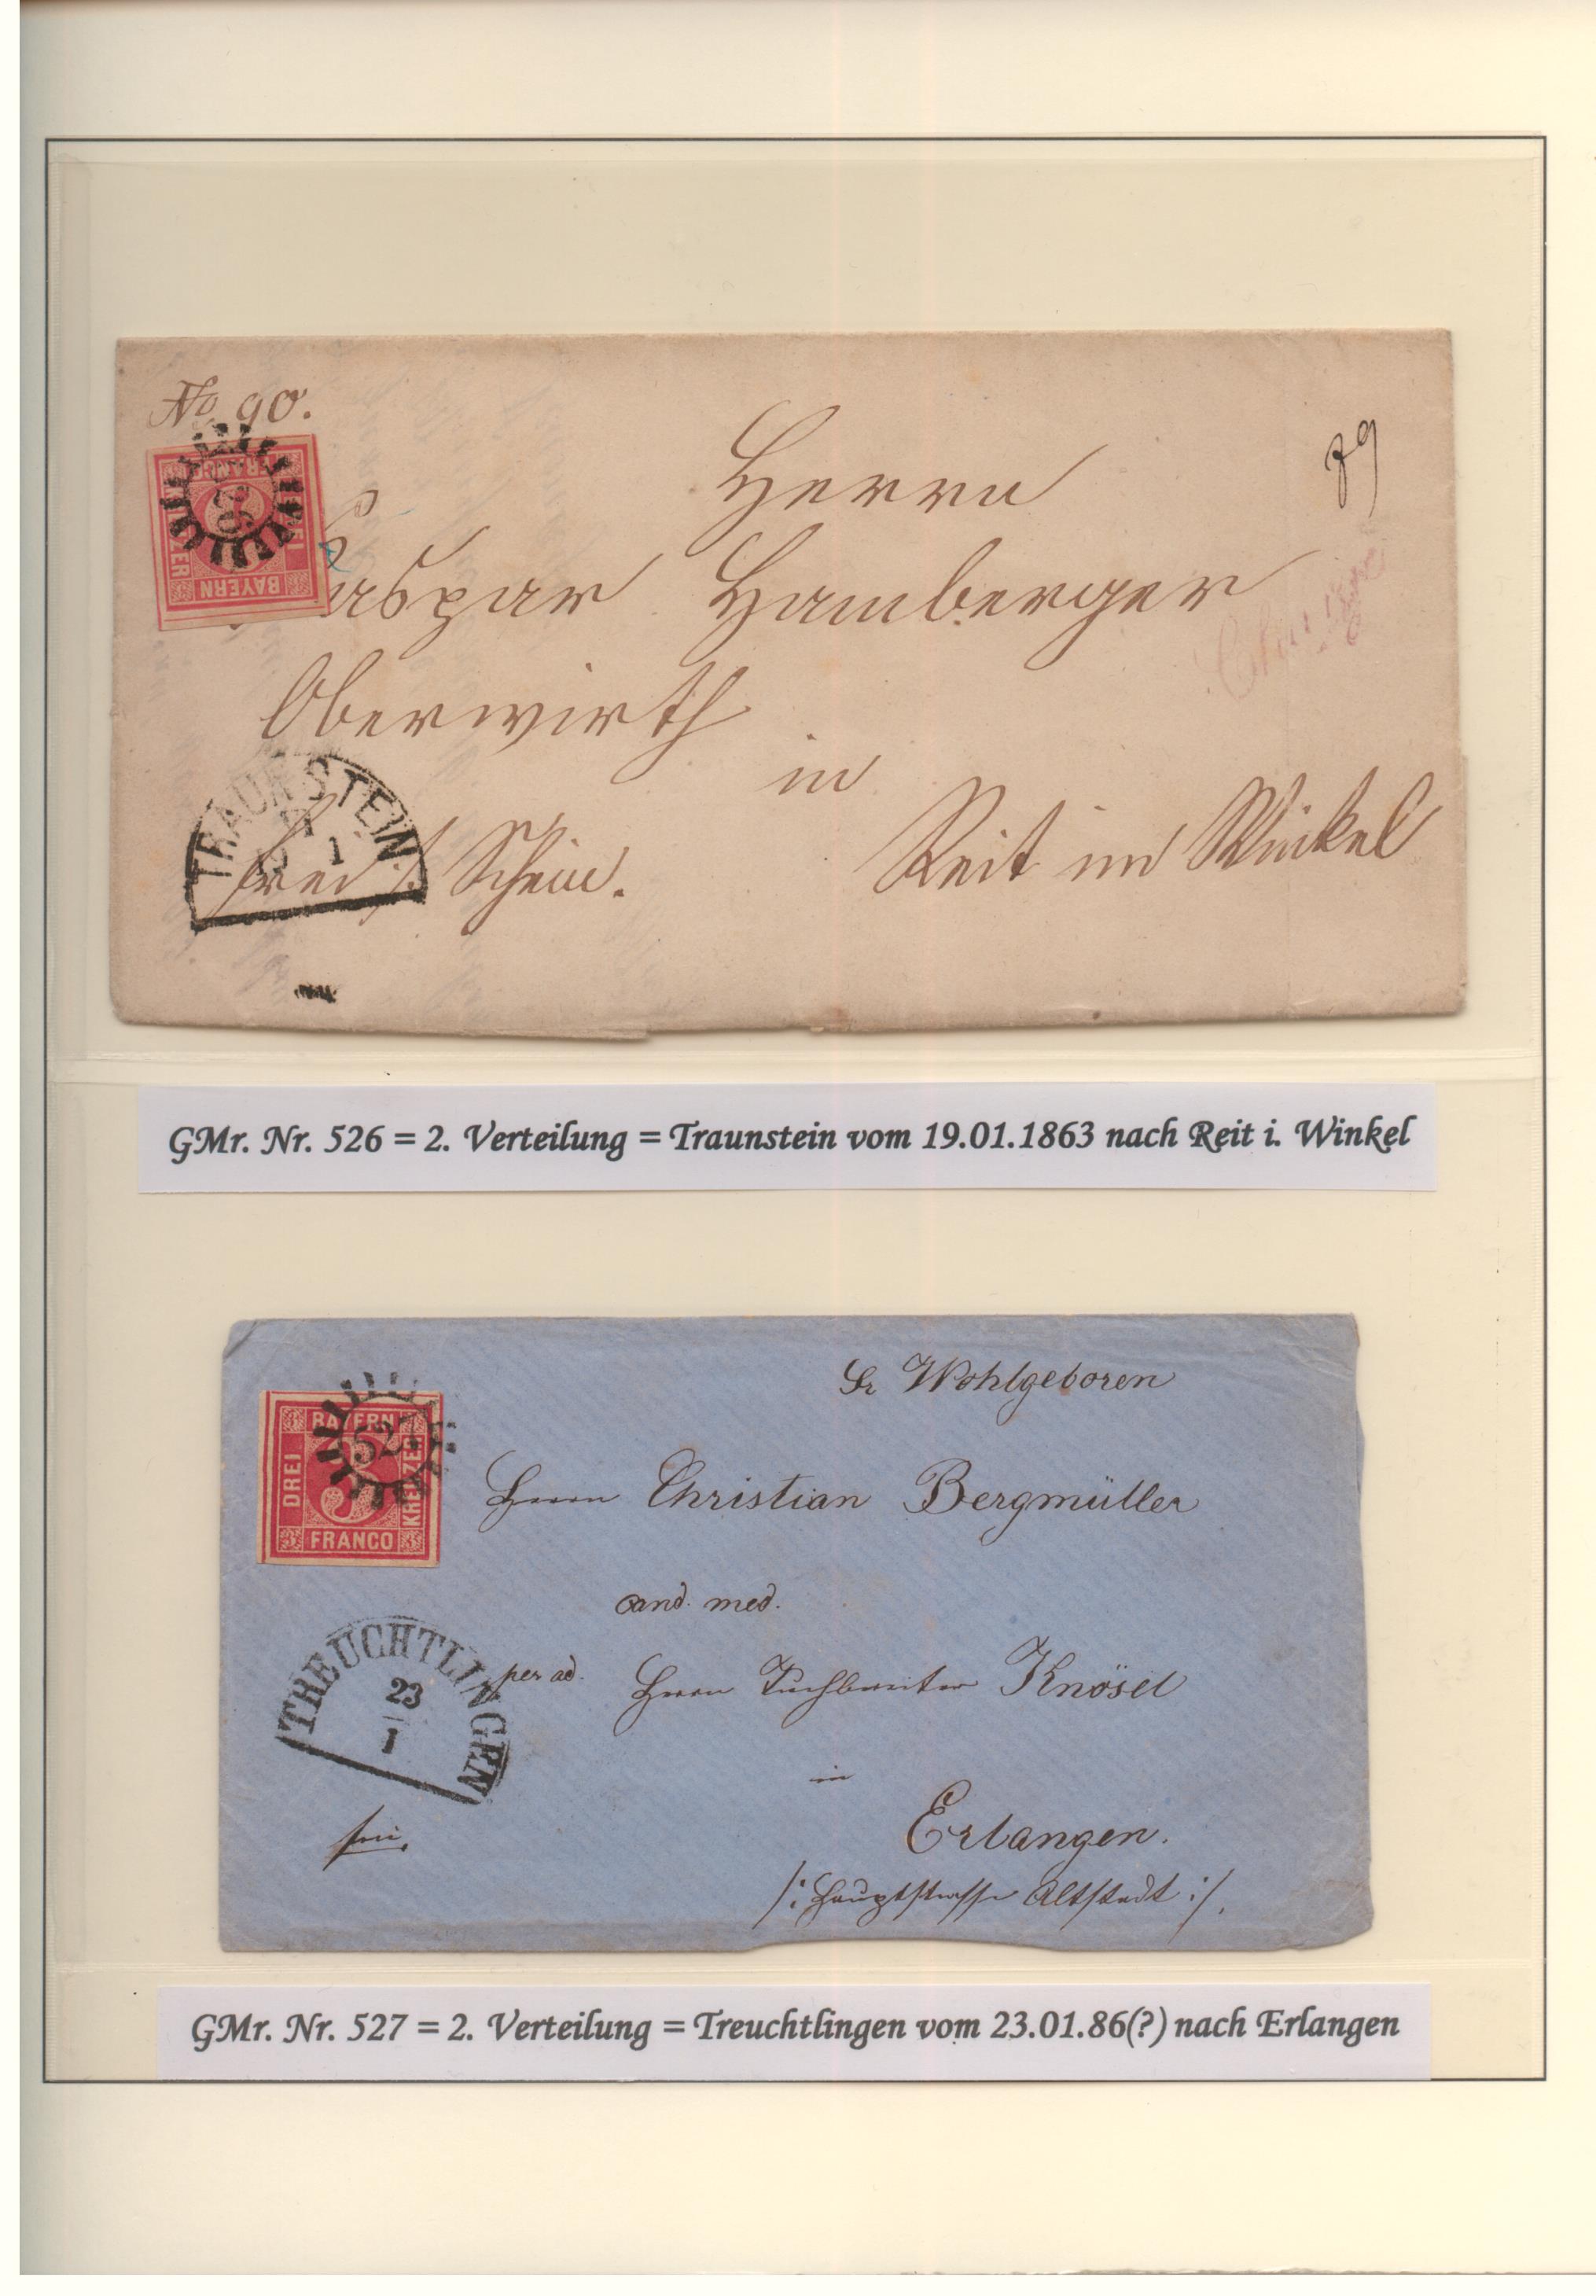 No 90.
Herrn
89
Caspar Hamberger
Chargé
Oberwirth
in
frei / Schein.
Reit im Winkel
FRANCO
DREI
KREUZER
BAYERN
526
TRAUNSTEIN
19 1
GMr. Nr. 526 = 2. Verteilung = Traunstein vom 19.01.1863 nach Reit i. Winkel
Sr Wohlgeboren
BAYERN
DREI
KREUZER
FRANCO
3
527
Herrn Christian Bergmüller
cand. med.
per ad. Herrn Tuchbereiter Knösel
in
Erlangen.
/: Hauptstrasse Altstadt :/.
TREUCHTLINGEN
23
1
frei.
GMr. Nr. 527 = 2. Verteilung = Treuchtlingen vom 23.01.86(?) nach Erlangen